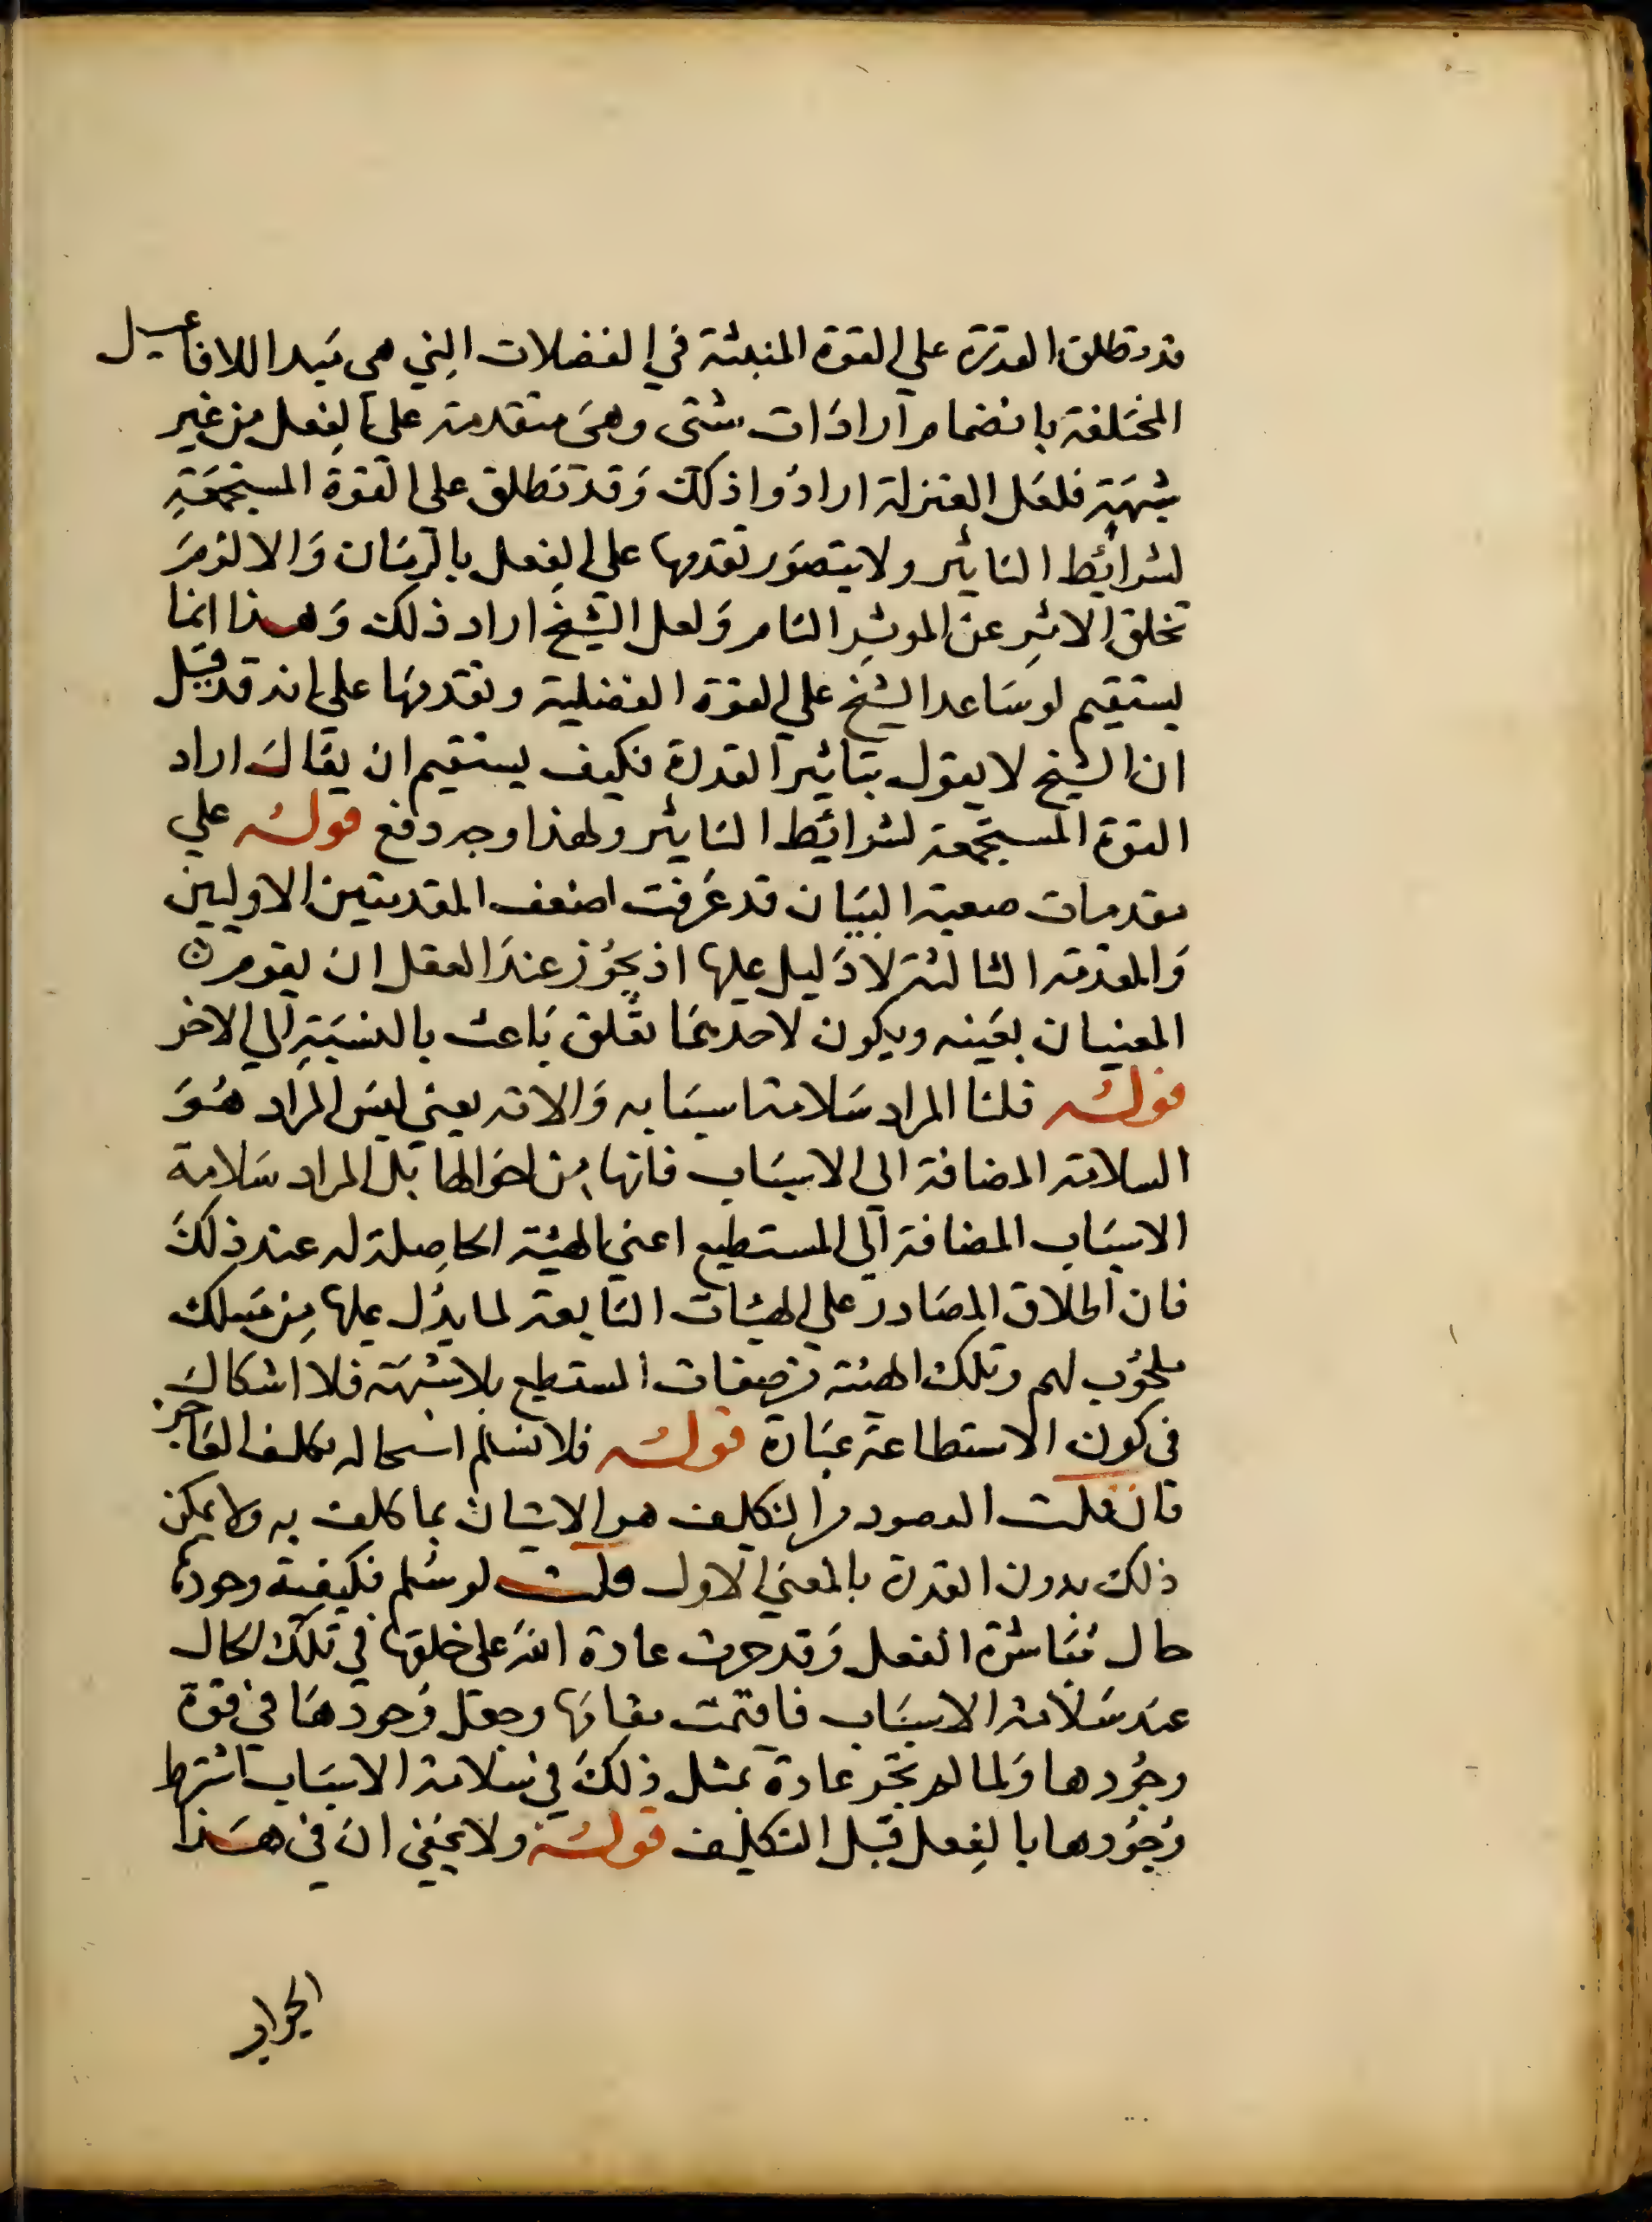 قد تطلق القدرة علي القوة المنبثة في الفضلات التي هى مبدا للافاعيل
المختلفة بانضمام ارادات شتى وهى متقدمة على الفعل من غير
شبهة فلعل المعتزلة ارادوا ذلك وقد تطلق على القوة المستجمعة
لشرائط التاثير ولا يتصور تقدمها علي الفعل بالزمان والا لزم
تخلق الاثر عن الموثر التام ولعل الشيخ اراد ذلك وهذا انما
يستقيم لو ساعد الشيخ علي القوة الفضلية وتقدمها على انه قد قيل
ان الشيخ لا يقول بتاثير القدرة فكيف يستقيم ان يقال اراد
القوة المستجمعة لشرائط التاثير ولهذا وجه دفع قوله علي
مقدمات صعبة البيان قد عرفت اضعف المقدمتين الاوليين
والمقدمة الثالثة لا دليل عليها اذ يجوز عند العقل ان يقوم
المعنيان بعينه ويكون لاحدهما تعلق باعث بالنسبة الي الاخر
قوله قلنا المراد سلامة اسبابه والاته يعني ليس المراد هو
السلامة المضافة الي الاسباب فانها من احوالها بل المراد سلامة
الاسباب المضافة الى المستطيع اعني الهيئة الحاصلة له عند ذلك
فان اطلاق المصادر علي الهيئات التابعة لما يدل عليها من مسلك
ملحوب لهم وتلك الهيئة من صفات المستطيع بلا شبهة فلا اشكال
فى كون الاستطاعة عبارة قوله فلا نسلم استحالة تكليف العاجز
فان قلت المقصود من التكليف هو الاتيان بما كلف به ولا يمكن
ذلك بدون القدرة بالمعنى الاول قلت لو سلم فكيفيته وجودها
حال مباشرة الفعل وقد جرت عادة الله على خلقها في تلك الحال
عند سلامة الاسباب فاقيمت مقامها وجعل وجودها في قوة
وجودها ولما لم تجر عادة بمثل ذلك في سلامة الاسباب اشترط
وجودها بالفعل قبل التكليف قوله ولا يخفى ان فى هذا
الجواب